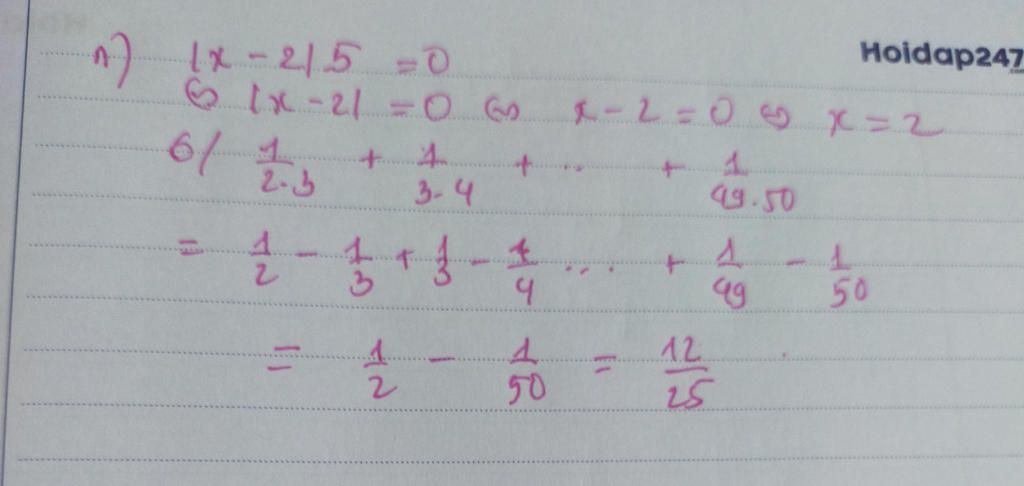 Hoidap247
1) |x - 2| 5 = 0
⇔ |x - 2| = 0 ⇔ x - 2 = 0 ⇔ x = 2
6/ 1/2.3 + 1/3.4 + .. + 1/49.50
= 1/2 - 1/3 + 1/3 - 1/4 ... + 1/49 - 1/50
= 1/2 - 1/50 = 12/25